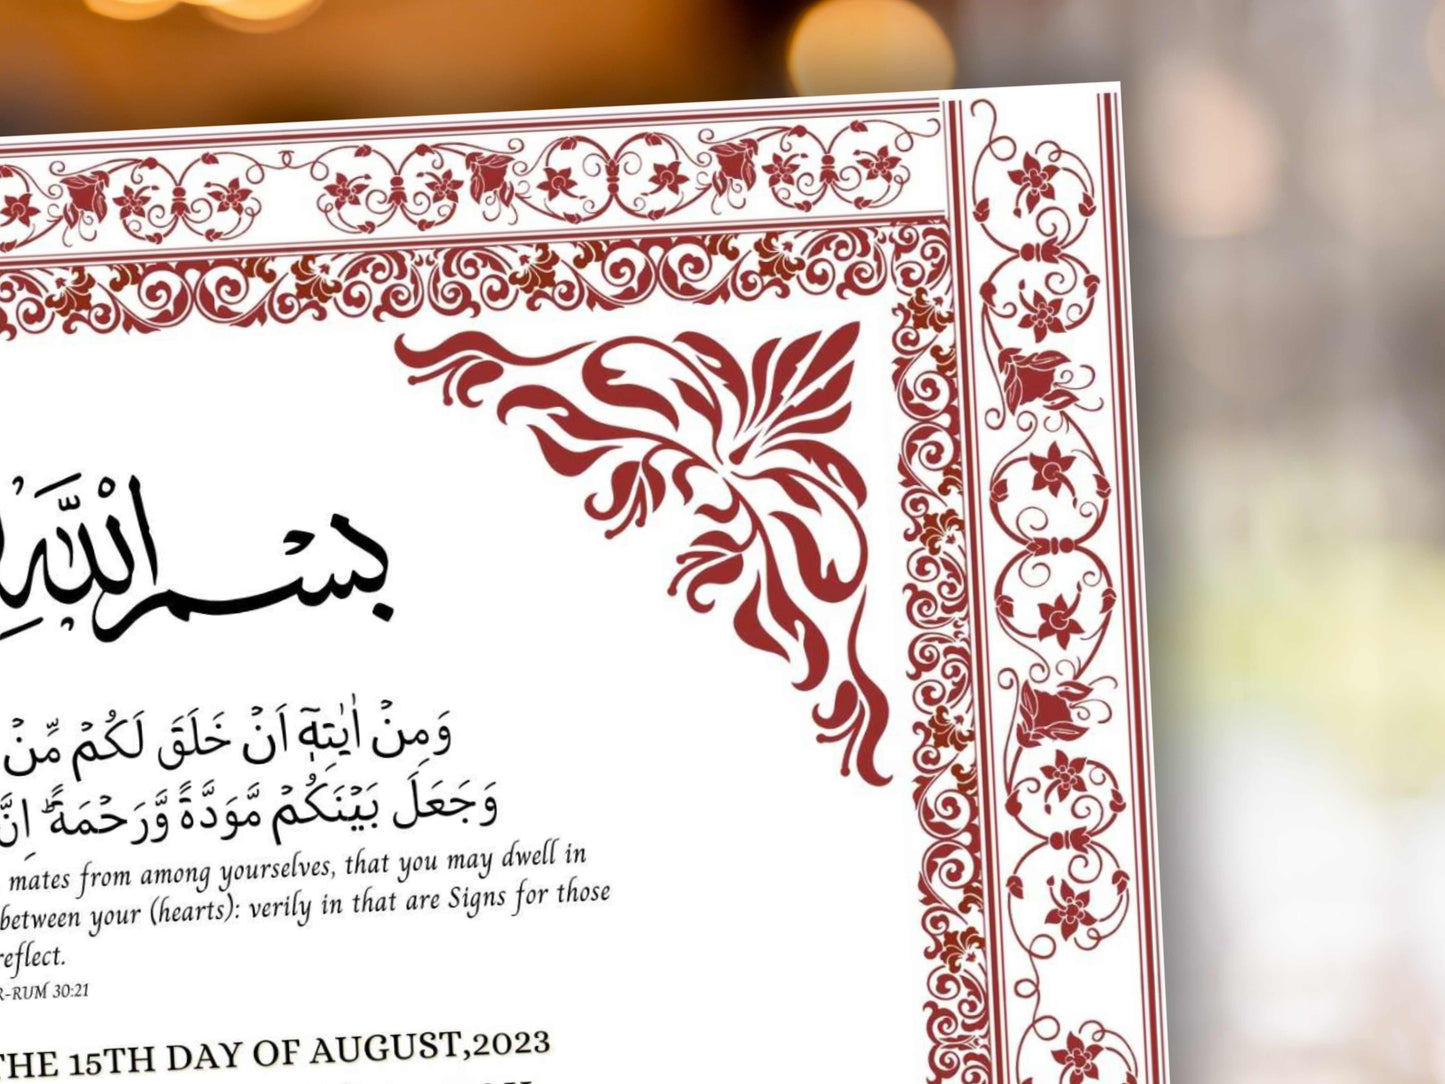 بِسْمِ اللّٰهِ
وَمِنْ اٰيٰتِهٖٓ اَنْ خَلَقَ لَكُمْ مِّنْ
وَجَعَلَ بَيْنَكُمْ مَّوَدَّةً وَّرَحْمَةً ؕ اِنَّ
mates from among yourselves, that you may dwell in
between your (hearts): verily in that are Signs for those
reflect.
R-RUM 30:21
THE 15TH DAY OF AUGUST,2023